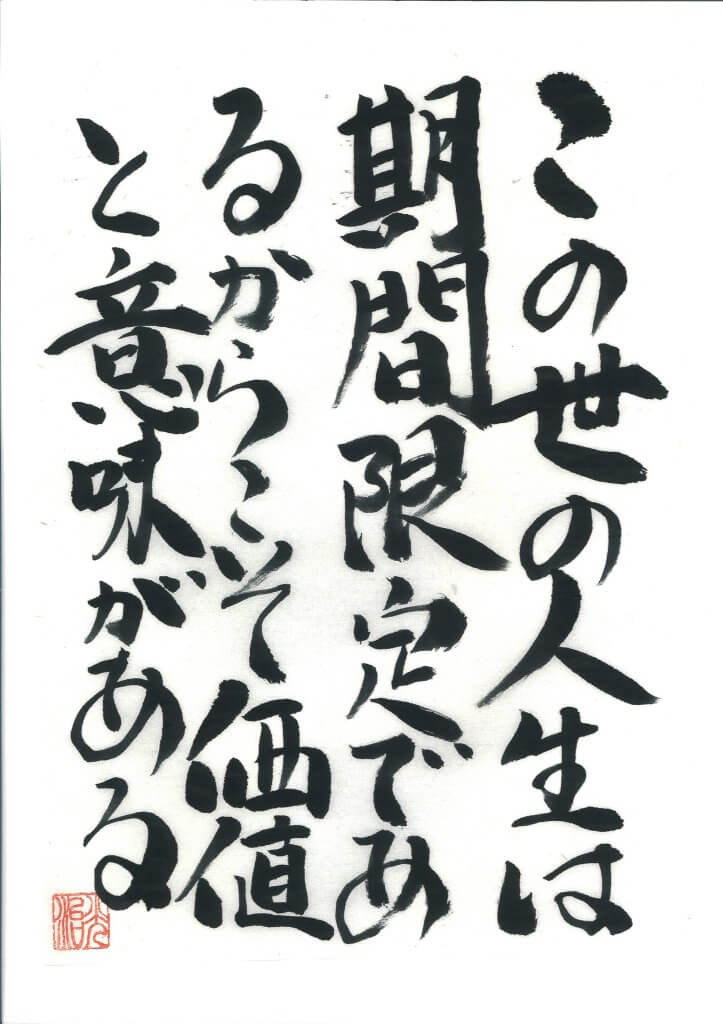 この世の人生は
期間限定であ
るからこそ価値
と意味がある